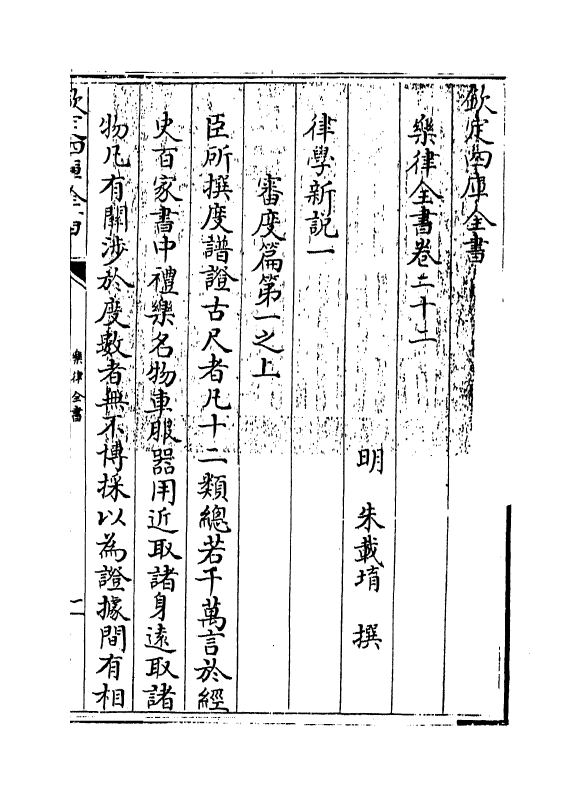 欽定四庫全書
樂律全書卷二十二
明 朱載堉 撰
律學新説一
審度篇第一之上
臣所撰度譜證古尺者凡十二類總若干萬言於經
史百家書中禮樂名物車服器用近取諸身遠取諸
物凡有關涉於度數者無不博採以為證據間有相
欽定四庫全書
樂律全書
一